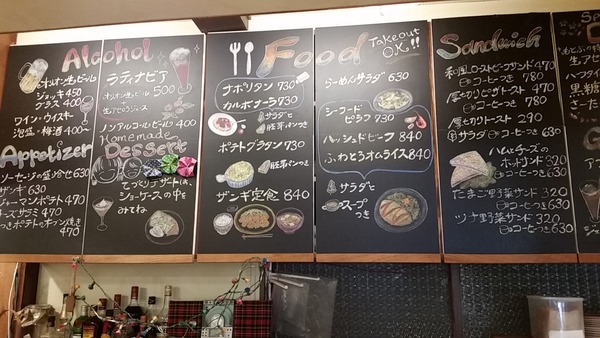 Alcohol
オリオン生ビール
ジョッキ 450
グラス 400
ワイン・ウイスキー
泡盛・梅酒 400~
ラティナビア
500
オリオン生ビール
+
生アセロラジュース
ノンアルコールビール 400
Appetizer
ソーセージの盛合せ 630
ザンギ 630
ジャーマンポテト 470
チーズサラミ 470
ポテトのオーブン焼き
470
Homemade
Dessert
ショーケースの中を
みてね
Food
Takeout
O.K!!
ナポリタン 730
カルボナーラ 730
サラダと
胚芽パンつき
ポテトグラタン 730
胚芽パンつき
ザンギ定食 840
らーめんサラダ 630
シーフード
ピラフ 730
ハッシュドビーフ 840
ふわとろオムライス 840
サラダと
スープ
つき
Sandwich
和風ローストビーフサンド 470
コーヒーつき 780
厚切りピザトースト 470
コーヒーつき 780
厚切りトースト 290
サラダ・コーヒーつき 630
ハムとチーズの
ホットサンド 320
コーヒーつき 630
たまご野菜サンド 320
コーヒーつき 630
ツナ野菜サンド 320
コーヒーつき 630